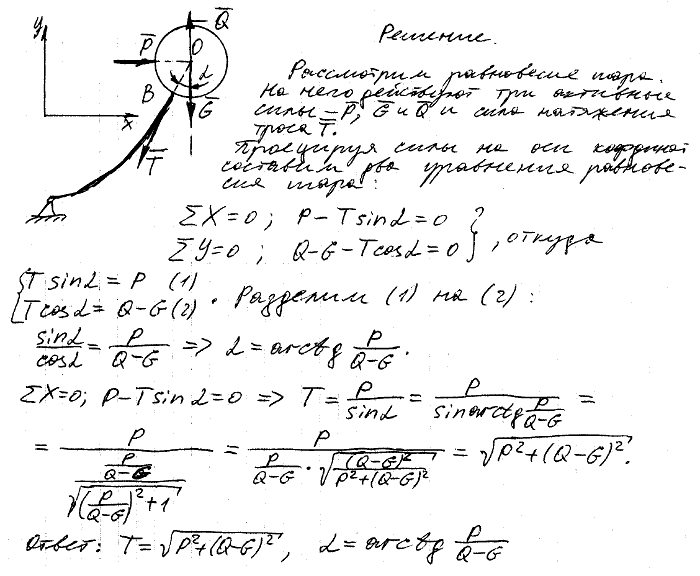 y
x
Q̅
P̅
O
α
B
G̅
T̅
Решение.
Рассмотрим равновесие шара.
На него действуют три активные
силы – P̅, G̅ и Q̅ и сила натяжения
троса T̅.
Проецируя силы на оси координат
составим два уравнения равнове-
сия шара:
ΣX=0; P-Tsinα=0
ΣY=0; Q-G-Tcosα=0 }, откуда
{Tsinα=P (1)
Tcosα=Q-G (2). Разделим (1) на (2):
sinα/cosα = P/(Q-G) => α=arctg P/(Q-G).
ΣX=0; P-Tsinα=0 => T = P/sinα = P/(sin arctg P/(Q-G)) =
= P/((P/(Q-G))/√((P/(Q-G))²+1)) = P/(P/(Q-G)·√((Q-G)²/(P²+(Q-G)²))) = √(P²+(Q-G)²).
Ответ: T=√(P²+(Q-G)²), α=arctg P/(Q-G)